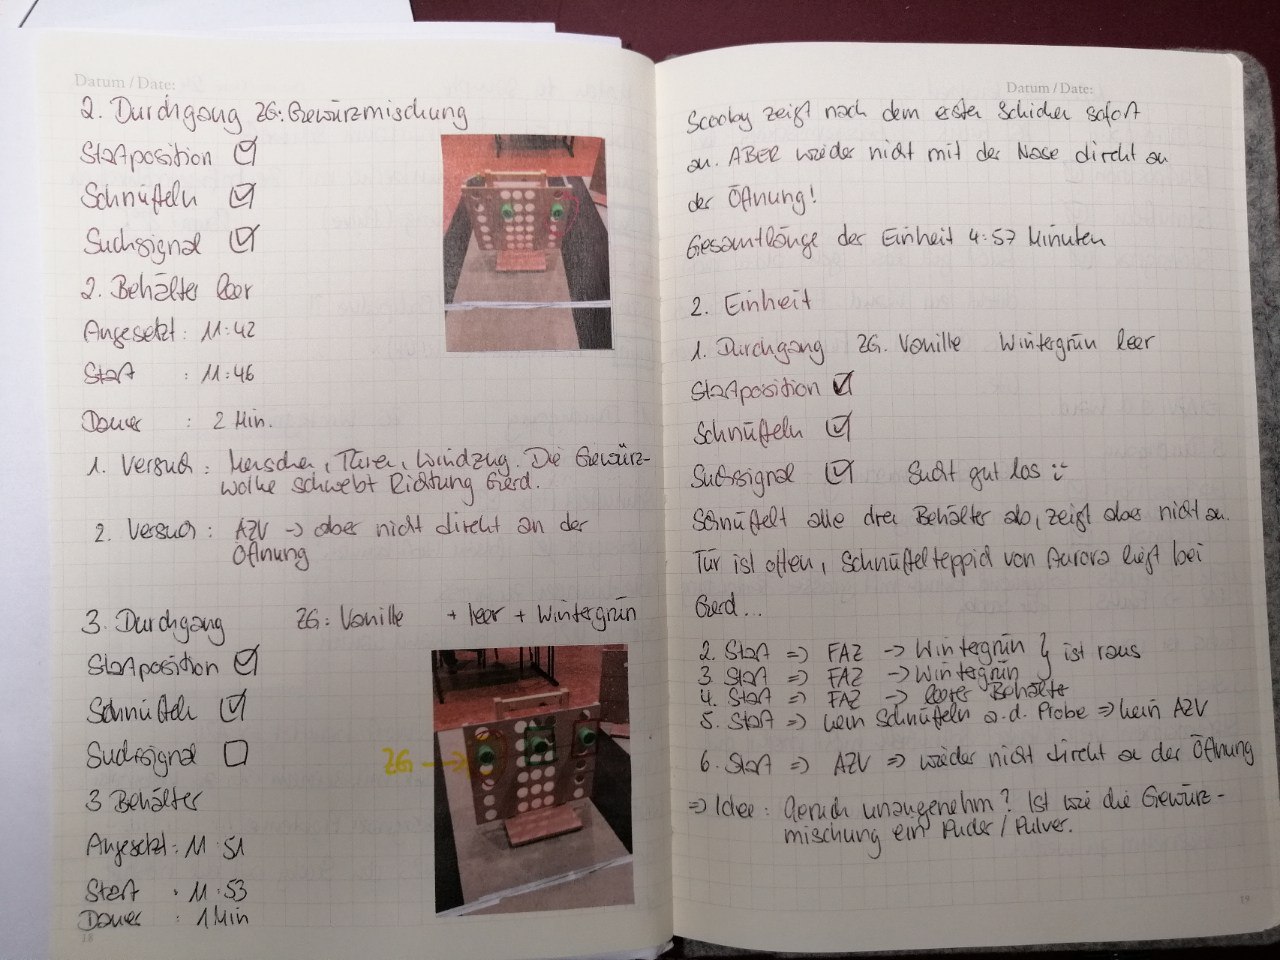 Datum / Date:
2. Durchgang ZG: Gewürzmischung
Startposition ☑
Schnüffeln ☑
Suchsignal ☑
2. Behälter leer
Angesetzt: 11:42
Start : 11:46
Dauer : 2 Min.
1. Versuch: Menschen, Türen, Windzug. Die Gewürz-
wolke schwebt Richtung Gerd.
2. Versuch: AZV -> aber nicht direkt an der
Öffnung
3. Durchgang ZG: Vanille + leer + Wintergrün
Startposition ☑
Schnüffeln ☑
Suchsignal ☐
ZG ->
3 Behälter
Angesetzt: 11:51
Start : 11:53
Dauer : 1 Min
18
Datum / Date:
Scooby zeigt nach dem ersten Schicken sofort
an. ABER wieder nicht mit der Nase direkt an
der Öffnung!
Gesamtlänge der Einheit 4:57 Minuten
2. Einheit
1. Durchgang ZG. Vanille Wintergrün leer
Startposition ☑
Schnüffeln ☑
Suchsignal ☑ Sucht gut los :-
Schnüffelt alle drei Behälter ab, zeigt aber nicht an.
Tür ist offen, Schnüffelteppich von Aurora liegt bei
Gerd...
2. Start => FAZ -> Wintergrün } ist raus
3. Start => FAZ -> Wintergrün
4. Start => FAZ -> leerer Behälter
5. Start => kein Schnüffeln a.d. Probe => kein AZV
6. Start => AZV => wieder nicht direkt an der Öffnung
=> Idee: Geruch unangenehm? Ist wie die Gewürz-
mischung ein Puder / Pulver.
19